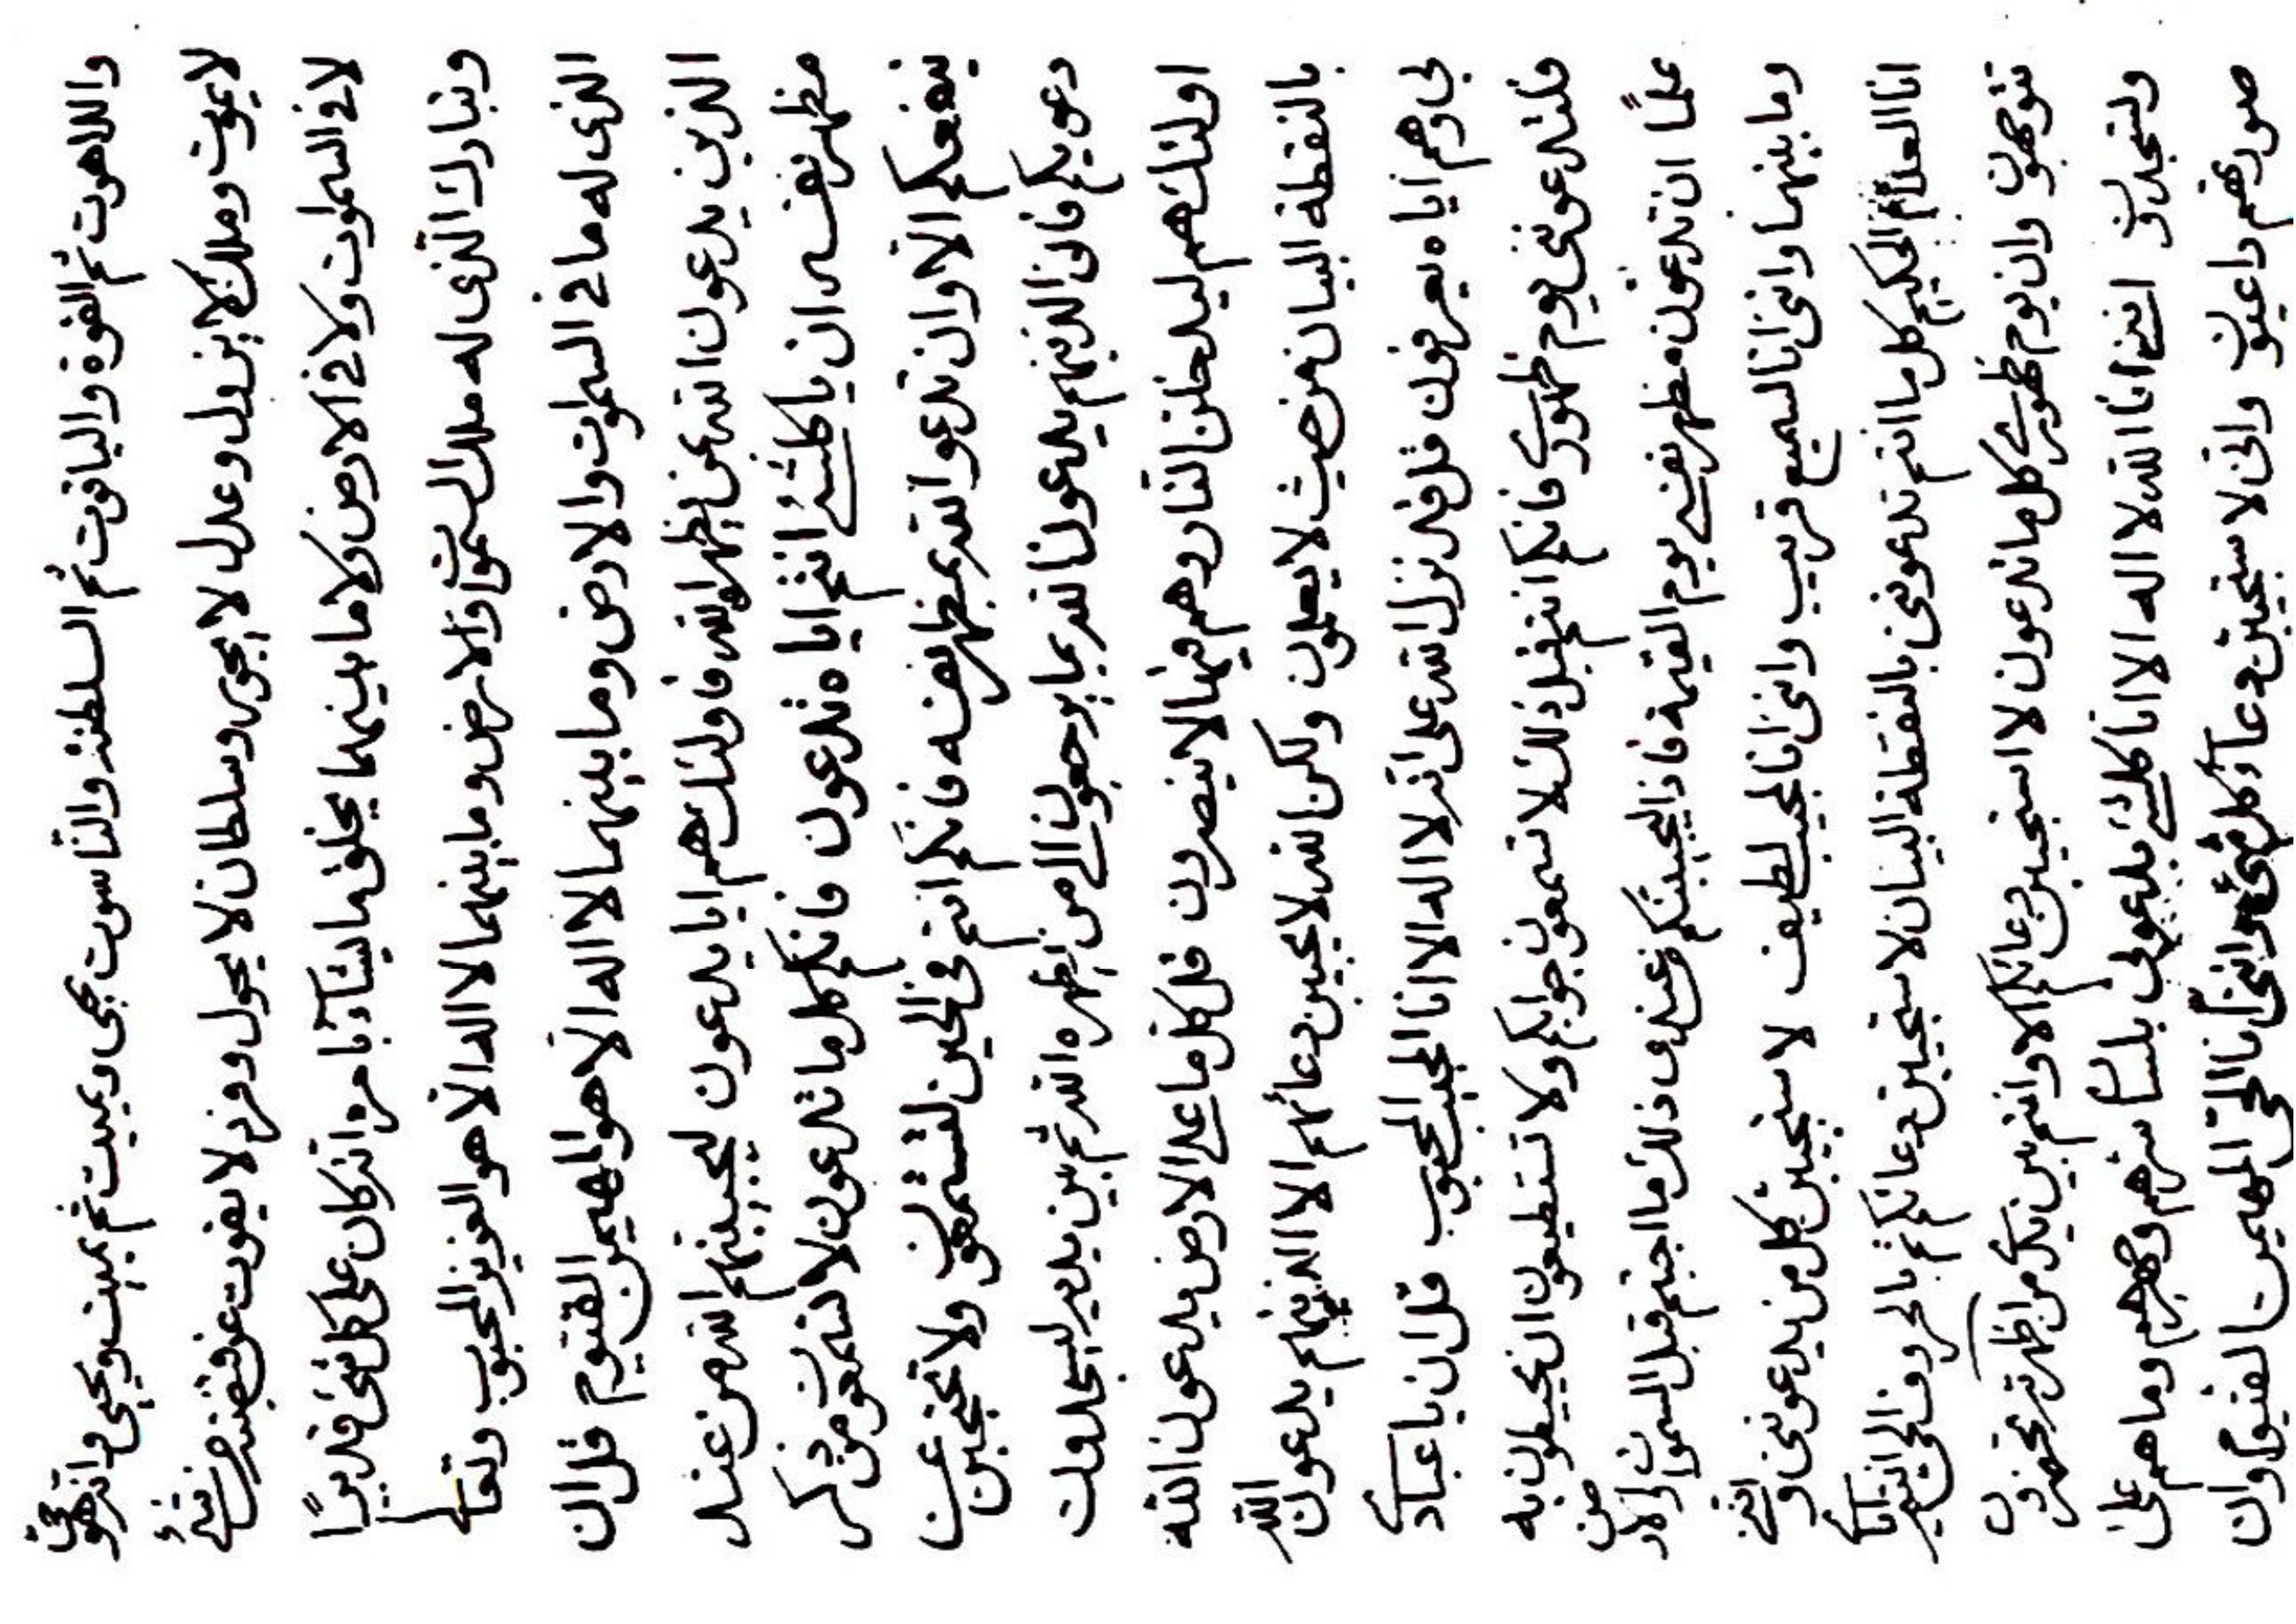 واللاهوت ثم القوة والياقوت ثم السلطنة والناسوت يحيى ويميت ثم يميت ويحيى وانه هو حى
لا يموت وملك لا يزول وعدل لا يجور وسلطان لا يحول وفرد لا يفوت عن قبضته من شئ
لا فى السموات ولا فى الارض ولا ما بينهما يخلق ما يشآء بامره انه كان على كل شئ قديرًا
وتبارك الذى له ملك السموات والارض وما بينهما لا اله الا هو العزيز المحبوب وتعالى
الذى له ما فى السموات والارض وما بينهما لا اله الا هو المهيمن القيوم قل ان
الذين يدعون الله بمن يظهره الله فاولئك هم اياه يدعون ليجيبنهم الله من عند
مظهر نفسه ان يا كلشئ انتم اياه تدعون فانكم كل ما تدعون لا تسمعون من ذكر
ينفعكم الا وان تدعو الله بمظهر نفسه فانكم انتم فى الحين لتسمعون ولا تحتجبن عن
دعويكم فان الذينهم يدعون الله بما يرجعون الى من يظهره الله ثم بين يديه ليسجدون
اولئك هم ليدخلن النار وهم فيها لا ينصرون قل كل ما على الارض يدعون الله
بالنقطة البيان من حيث لا يعلمون ولكن الله لا يجيبن دعائهم الا الذينهم يدعون الله
بى وهم اياه يعرفون قل قد نزل الله على انه لا اله الا انا المجيب المحبوب قل ان يا عبادى
فلتدعوننى يوم ظهورى فانكم انتم قبل ذلك لا تسمعون جوابكم ولا تستطيعون ان تحيطون به
علمًا ان تدعون مظهر نفسى يوم القيمة فاذا ليجيبنكم من عندى ذلك ما اجبتم قبل السموات والارض
وما بينهما واننى انا السميع قريب واننى انا المجيب لطيف لاستجيبن كل من يدعوننى واننى
انا العلام الحكيم كل ما انتم تدعوننى بالنقطة البيان لاستجيبن دعائكم ثم بالحروف الحى
تتوجهون وان يوم ظهورى كل ما تدعون لا استجيبن دعائكم الا وانتم بين يدى من اظهرته تحضرون
ولتسجدون اننى انا الله لا اله الا انا كلشئ يدعونى بلسان سرهم وجهرهم وما هم على
صورتهم داعيون وانى لاستجيبن دعآء كل شئ واننى انا الحى المهيمن القيوم وان